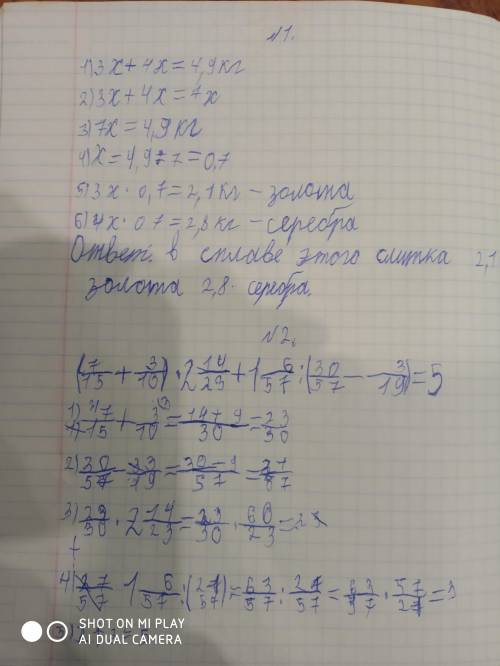 №1.
1) 3x + 4x = 4,9 кг
2) 3x + 4x = 7x
3) 7x = 4,9 кг
4) x = 4,9 : 7 = 0,7
5) 3x · 0,7 = 2,1 кг – золота
6) 4x · 0 7 = 2,8 кг – серебра
Ответ: в сплаве этого слитка 2,1
золота 2,8 серебра.
№2.
(7/15 + 3/10) · 2 14/23 + 1 6/57 : (30/57 − 3/19) = 5
1) 7/15 + 3/10 = 14+9/30 = 23/30
2) 30/57 − 3/19 = 30−9/57 = 21/57
3) 23/30 · 2 14/23 = 23/30 · 60/23 = 2
4) 1 6/57 : (21/57) = 63/57 : 21/57 = 63/57 · 57/21 = 3
SHOT ON MI PLAY
AI DUAL CAMERA